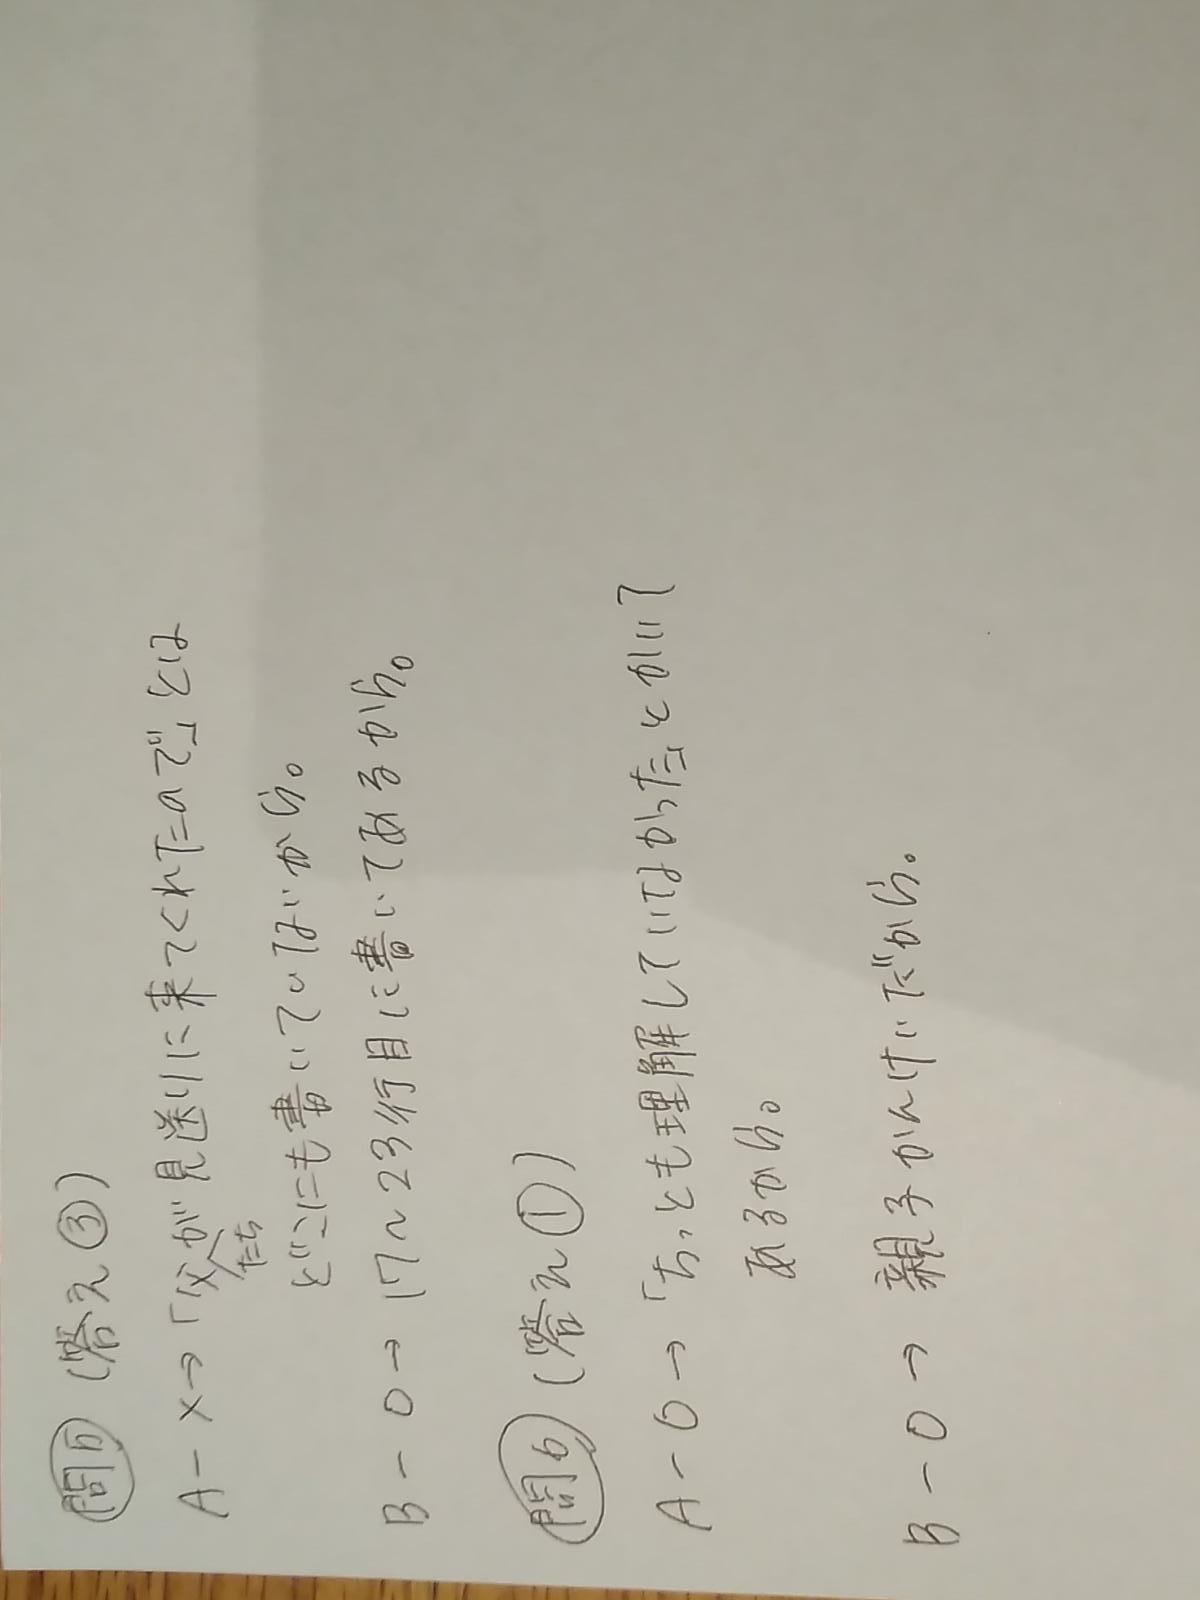 問5 (答え③)
A-×→「父たちが見送りに来てくれたので」とは
どこにも書いていないから。
B-○→17~23行目に書いてあるから。
問6 (答え①)
A-○→「ちっとも理解していなかった」とかいて
あるから。
B-○→親子かんけいだから。